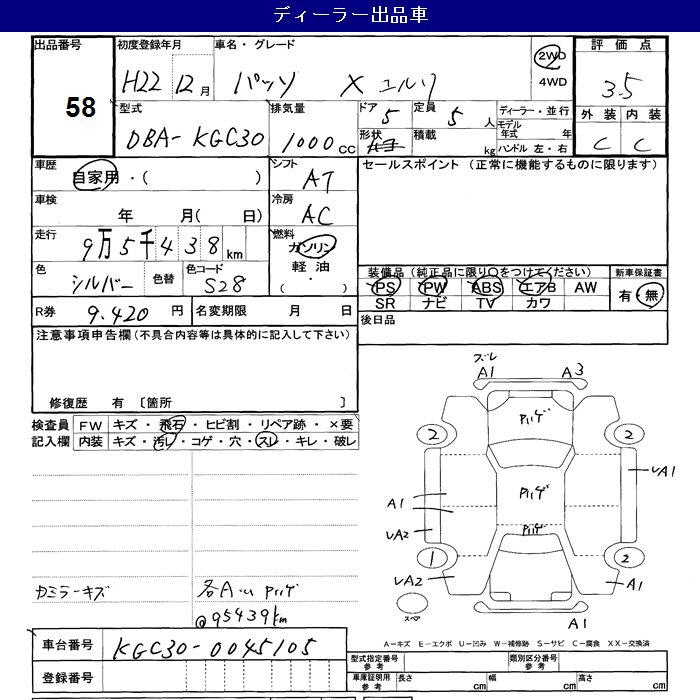 ディーラー出品車
出品番号 58
初度登録年月 H22 12月
車名・グレード パッソ X エルツ
2WD
4WD
評価点 3.5
外装 内装
C C
型式 DBA-KGC30
排気量 1000cc
ドア 5
形状
定員 5人
積載 kg
ディーラー・並行
モデル年式 年
ハンドル 左・右
車歴 自家用・( )
シフト AT
セールスポイント (正常に機能するものに限ります)
車検 年 月( 日)
冷房 AC
走行 9万5千438km
燃料 ガソリン
軽油
( ・ )
色 シルバー 色替 色コード S28
装備品 (純正品に限り○をつけてください) 新車保証書
PS PW ABS エアB AW
SR ナビ TV カワ
有・無
R券 9.420円 名変期限 月 日
後日品
注意事項申告欄(不具合内容等は具体的に記入して下さい)
修復歴 有 〔箇所 〕
検査員記入欄
FW キズ・飛石・ヒビ割・リペア跡・×要
内装 キズ・汚レ・コゲ・穴・スレ・キレ・破レ
ズレ
A1 A3
2 2
A1 A1
A2
1 2
A2 A1
スペア
A1
Dミラーキズ
@95439km
A-キズ E-エクボ U-凹み W-補修跡 S-サビ C-腐食 XX-交換済
車台番号 KGC30-0045105
登録番号
型式指定番号 参考
類別区分番号 参考
車庫証明用 参考 長さ cm 幅 cm 高さ cm